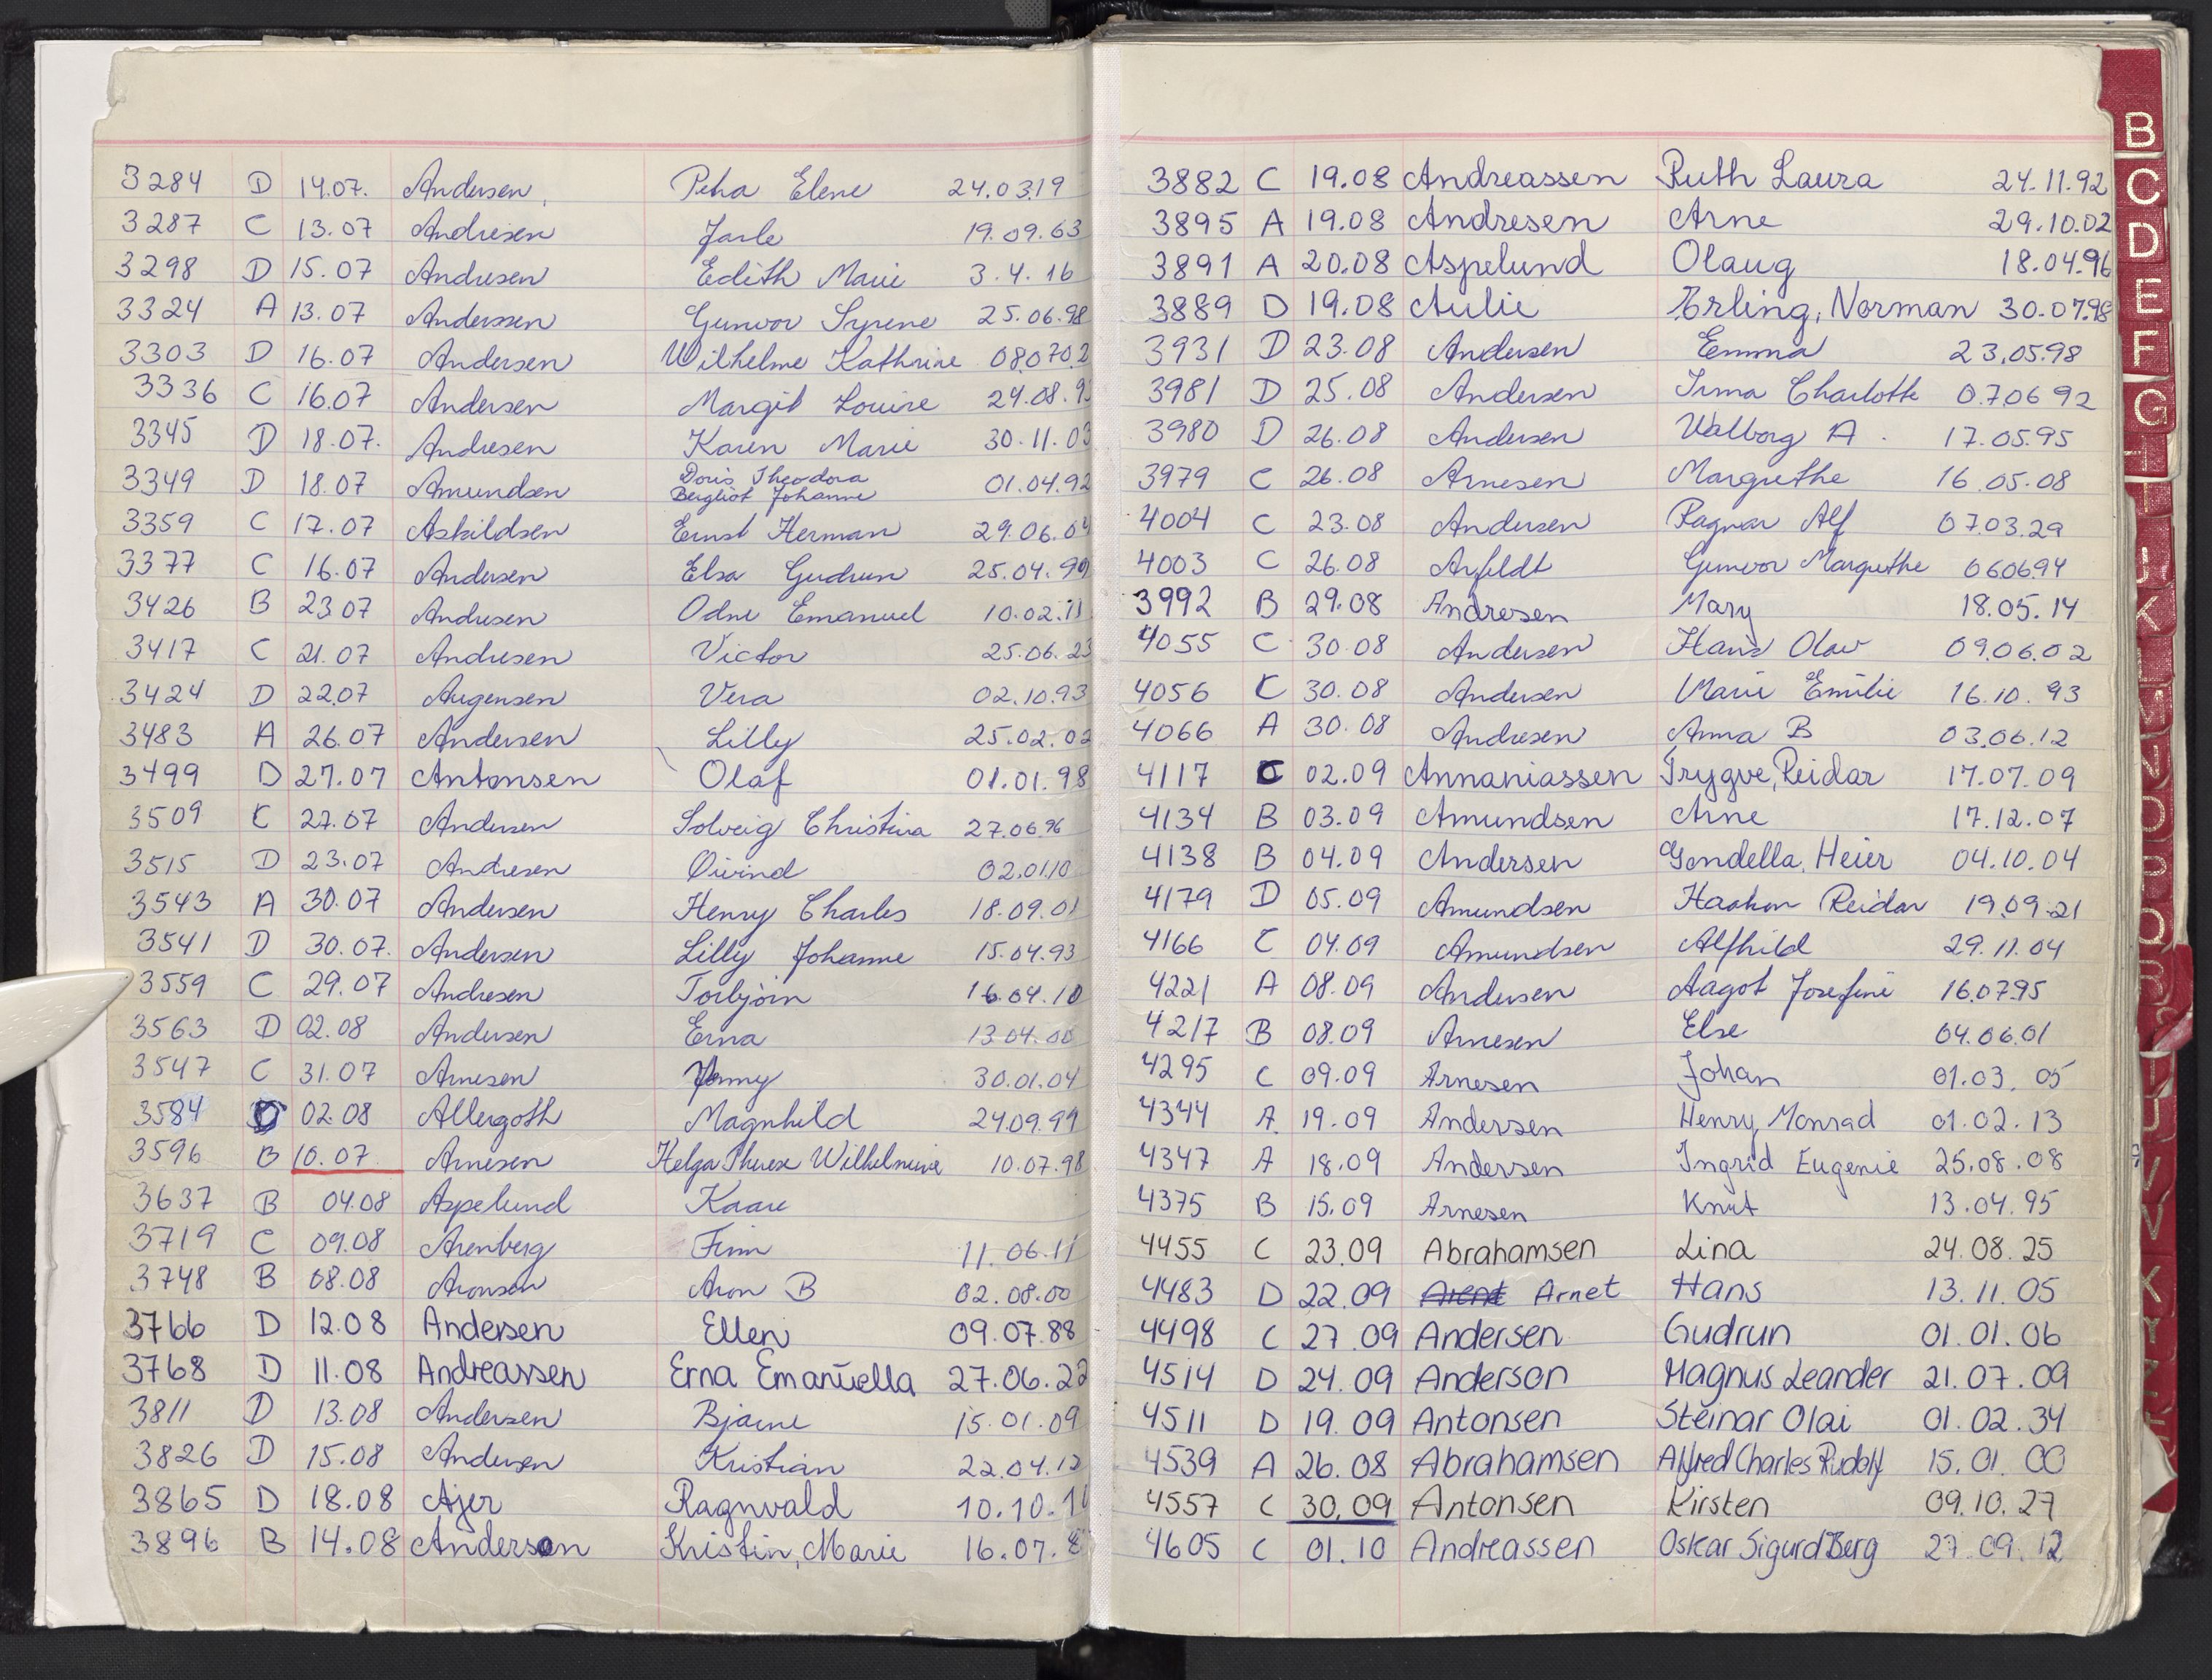 3284 D 14.07. Andersen, Petra Elene 24.03.19
3287 C 13.07 Andresen Jarle 19.09.63
3298 D 15.07 Andresen Edith Marie 3.4.16
3324 A 13.07 Anderssen Gunvor Syrene 25.06.98
3303 D 16.07 Andersen Wilhelme Kathrine 080702
3336 C 16.07 Andersen Margit Louise 24.08.9
3345 D 18.07. Andresen Karen Marie 30.11.03
3349 D 18.07 Amundsen Doris Theodora 01.04.92
Bergliot Johanne
3359 C 17.07 Askildsen Ernst Herman 29.06.04
3377 C 16.07 Andersen Elsa Gudrun 25.04.99
3426 B 23 07 Andresen Odni Emanuel 10.02.11
3417 C 21.07 Andresen Victor 25.06.23
3424 D 22.07 Augensen Vera 02.10.93
3483 A 26.07 Andersen Lilly 25.02.02
3499 D 27.07 Antonsen Olaf 01.01.98
3509 C 27.07 Andersen Solveig Christina 27.06.96
3515 D 23.07 Andresen Øivind 02.01.10
3543 A 30.07 Andersen Henry Charles 18.09.01
3541 D 30.07. Andersen Lilly Johanne 15.04.93
3559 C 29.07 Andresen Torbjørn 16.04.10
3563 D 02.08 Andersen Erna 13.04.00
3547 C 31.07 Arnesen Jenny 30.01.04
3584 D 02.08 Allergoth Magnhild 24.09.99
3596 B 10.07 Arnesen Helga Therese Wilhelmine 10.07.98
3637 B 04.08 Aspelund Kaare
3719 C 09.08 Arenberg Finn 11.06.11
3748 B 08.08 Aronsen Aron B 02.08.00
3766 D 12.08 Andersen Ellen 09.07.88
3768 D 11.08 Andreassen Erna Emanuella 27.06.22
3811 D 13.08 Andersen Bjarne 15.01.09
3826 D 15.08 Andersen Kristian 22.04.12
3865 D 18.08 Ajer Ragnvald 10.10.1
3896 B 14.08 Anderson Kristin, Marie 16.07.8
3882 C 19.08 Andreassen Ruth Laura 24.11.92
3895 A 19.08 Andresen Arne 29.10.02
3891 A 20.08 Aspelund Olaug 18.04.96
3889 D 19.08 Aulie Erling, Norman 30.07.98
3931 D 23.08 Andersen Emma 23.05.98
3981 D 25.08 Andersen Irma Charlotte 07.06 92
3980 D 26.08 Andersen Valborg A. 17.05.95
3979 C 26.08 Arnesen Margrethe 16.05.08
4004 C 23.08 Andersen Ragnar Alf 07.03.29
4003 C 26.08 Arfeldt Gunvor Margrethe 060694
3992 B 29.08 Andresen Mary 18.05.14
4055 C 30.08 Andersen Hans Olav 09.06.02
4056 C 30.08 Andersen Marie Emilie 16.10.93
4066 A 30.08 Andresen Anna B 03.06.12
4117 C 02.09 Annaniassen Trygve, Reidar 17.07.09
4134 B 03.09 Amundsen Arne 17.12.07
4138 B 04.09 Andersen Gondella, Heier 04.10.04
4179 D 05.09 Amundsen Haakon Reidar 19.09.21
4166 C 04.09 Amundsen Alfhild 29.11.04
4221 A 08.09 Andersen Aagot Josefine 16.07.95
4217 B 08.09 Arnesen Else 04.06.01
4295 C 09.09 Arnesen Johan 01.03.05
4344 A 19.09 Andersen Henry Monrad 01.02.13
4347 A 18.09 Andersen Ingrid Eugenie 25.08.08
4375 B 15.09 Arnesen Knut 13.04.95
4455 C 23.09 Abrahamsen Lina 24.08.25
4483 D 22.09 Arent Arnet Hans 13.11.05
4498 C 27.09 Andersen Gudrun 01.01.06
4514 D 24.09 Anderson Magnus Leander 21.07.09
4511 D 19.09 Antonsen Steinar Olai 01.02.34
4539 A 26.08 Abrahamsen Alfred Charles Rudolf 15.01.00
4557 C 30.09 Antonsen Kirsten 09.10.27
4605 C 01.10 Andreassen Oskar Sigurd Berg 27.09.12
B
C
D
E
F
G
J
K